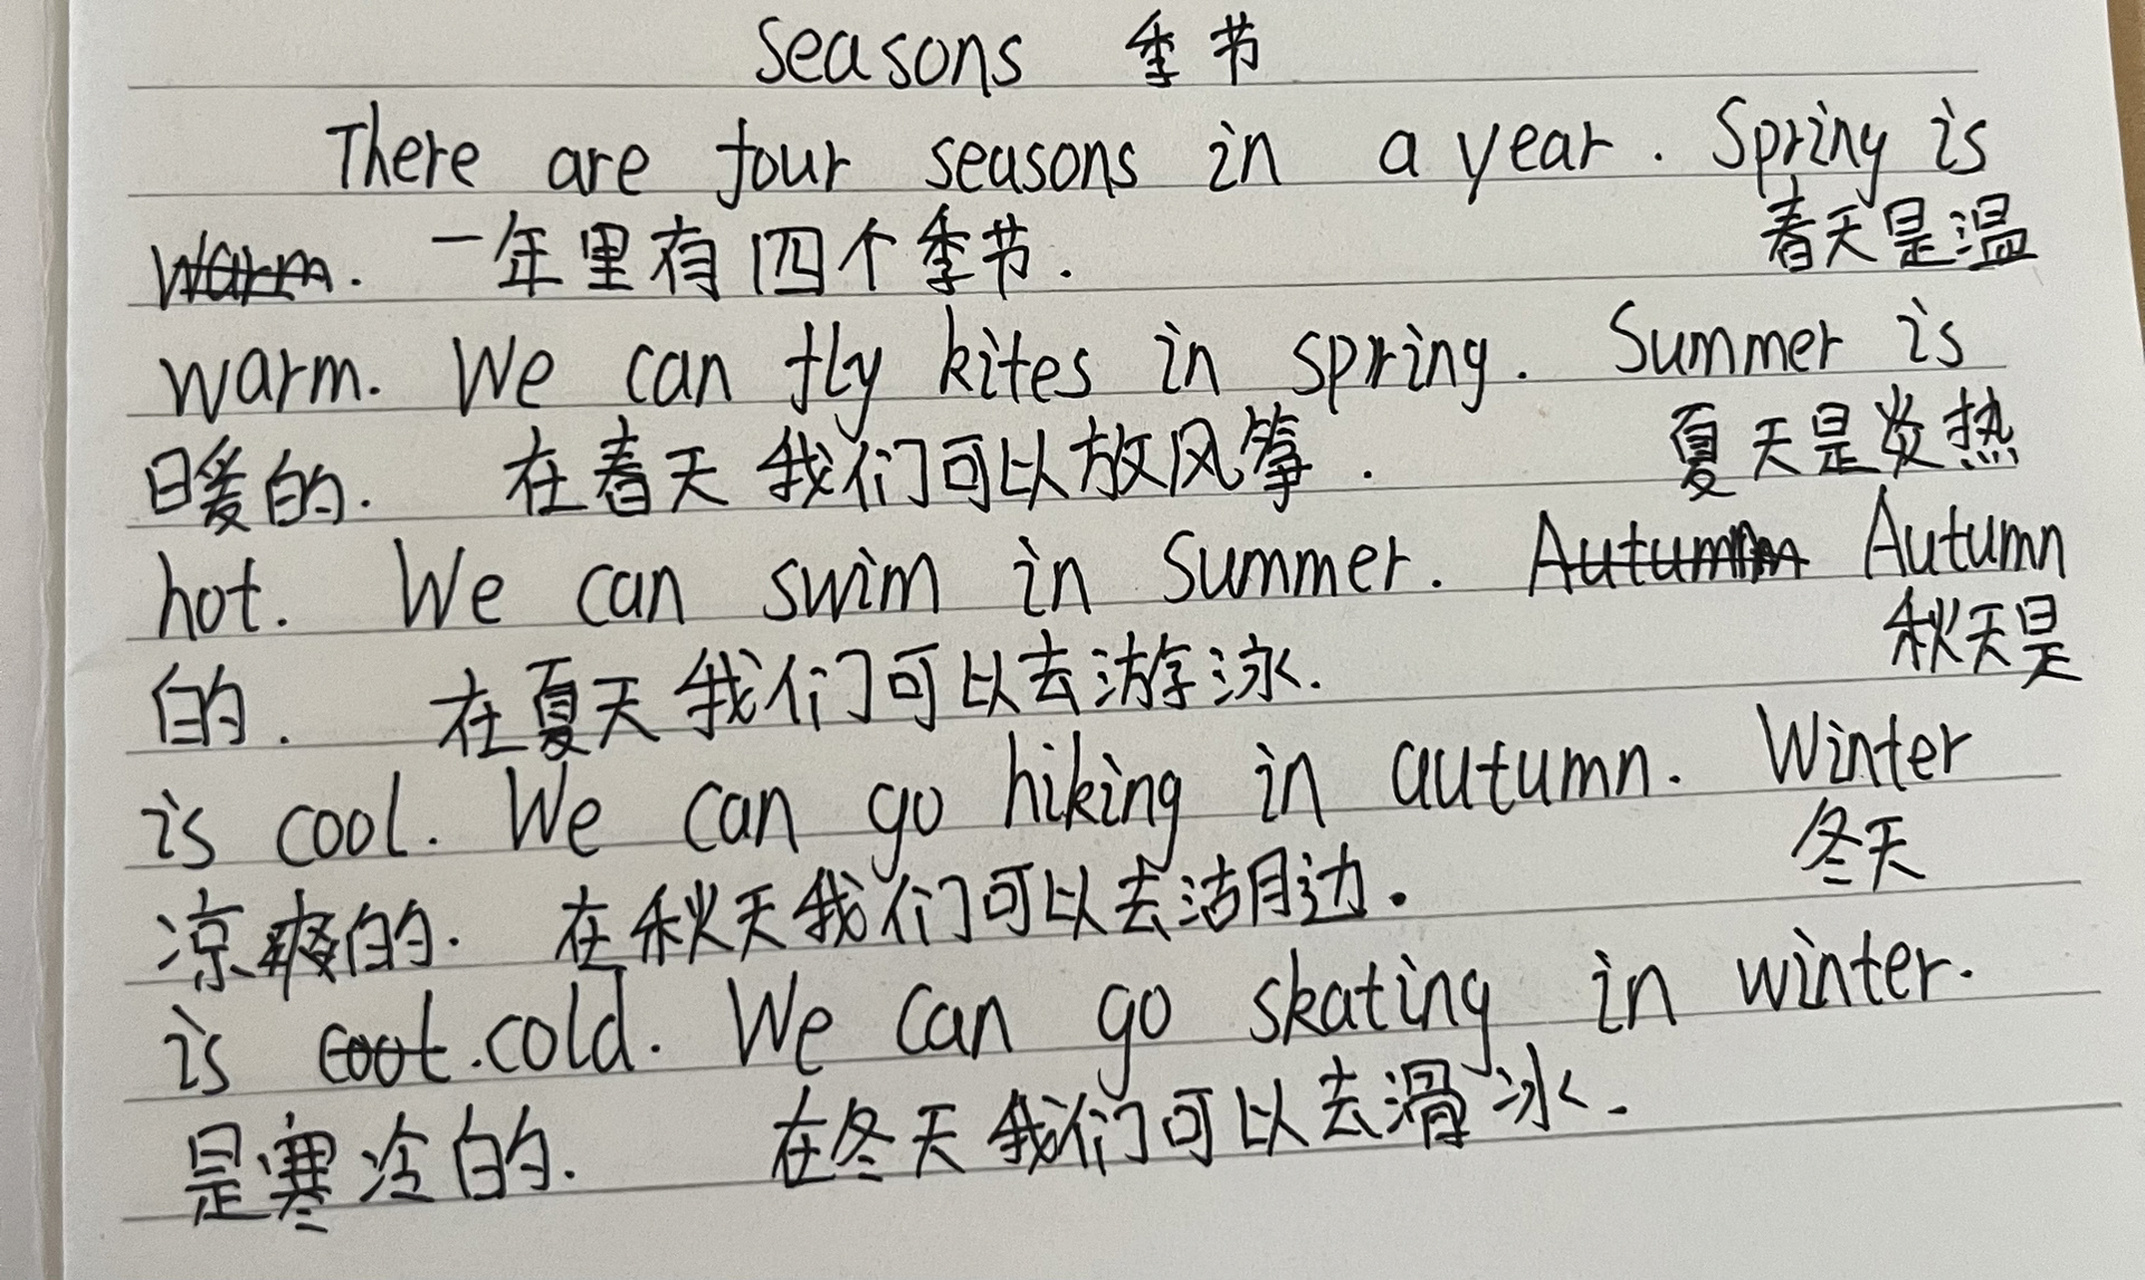 Seasons 季节
There are four seasons in a year. Spring is
warm. 一年里有四个季节. 春天是温
warm. We can fly kites in spring. Summer is
暖的. 在春天我们可以放风筝. 夏天是炎热
hot. We can swim in summer. Autumn Autumn
的. 在夏天我们可以去游泳. 秋天是
is cool. We can go hiking in autumn. Winter
凉爽的. 在秋天我们可以去湖边. 冬天
is cool. cold. We can go skating in winter.
是寒冷的. 在冬天我们可以去滑冰.